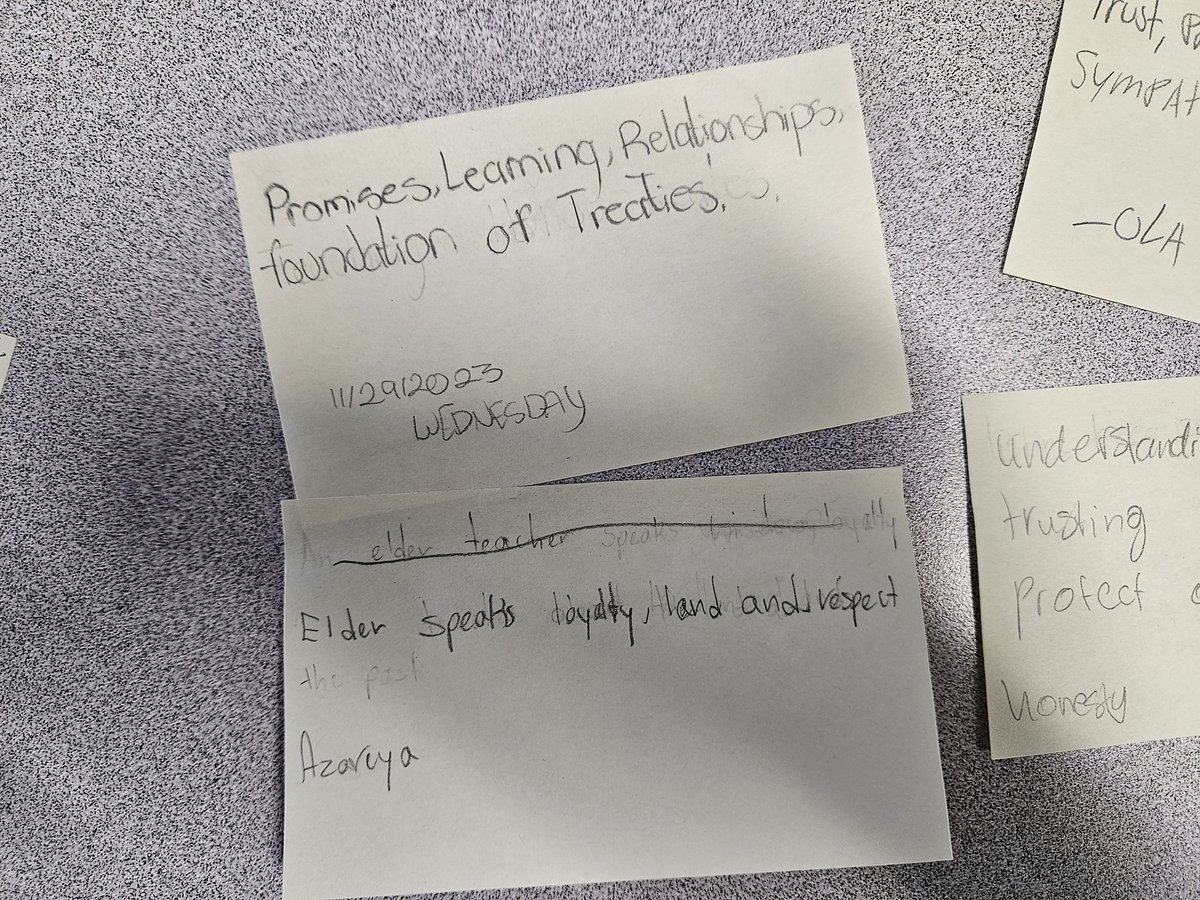 Promises, Learning, Relationships,
foundation of Treaties.
11/29/2023
WEDNESDAY
An elder teacher speaks loyalty
Elder speaks loyalty, land and respect
the past
Azareya
Trust,
SYMPAT
-OLA
understandi
trusting
protect
honesty